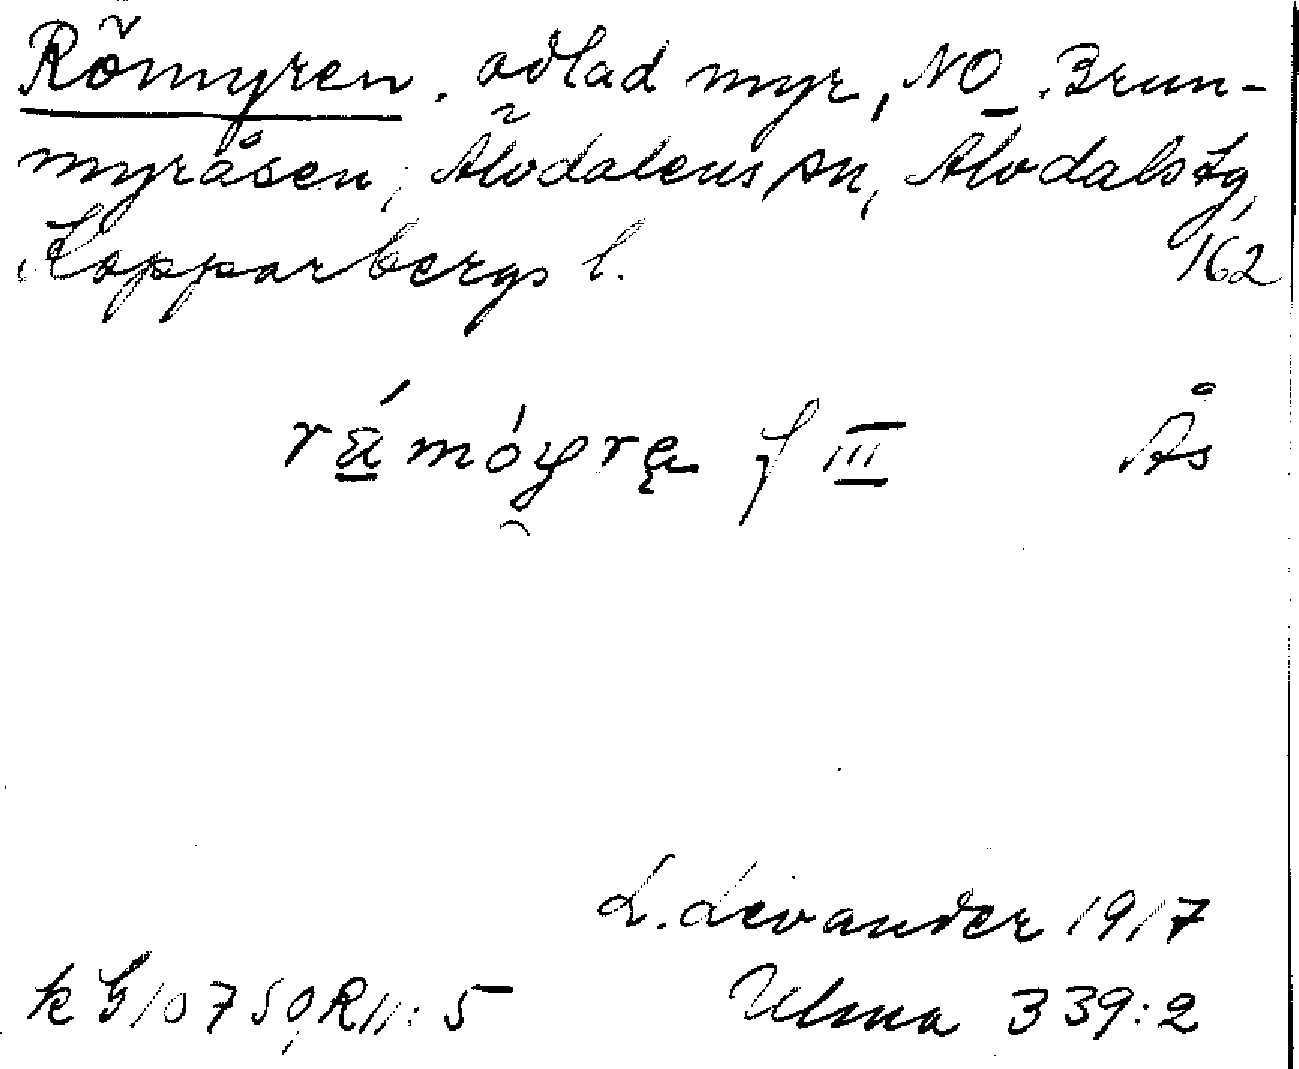 Römyren, odlad myr, NO Brun-
myråsen, Älvdalens sn, Älvdals tg,
Kopparbergs l. 162
f III Ås
L. Levander 1917
k G 10750, R 11:5 Ulma 339:2